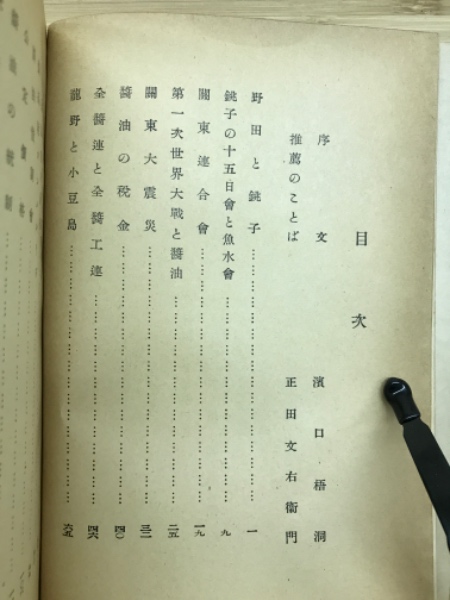 目次
序文 濱口梧洞
推薦のことば 正田文右衞門
野田と銚子……………………一
銚子の十五日會と魚水會……………………九
關東連合會……………………一九
第一次世界大戰と醬油……………………二五
關東大震災……………………三二
醬油の税金……………………四〇
全醬連と全醬工連……………………四六
龍野と小豆島……………………六五